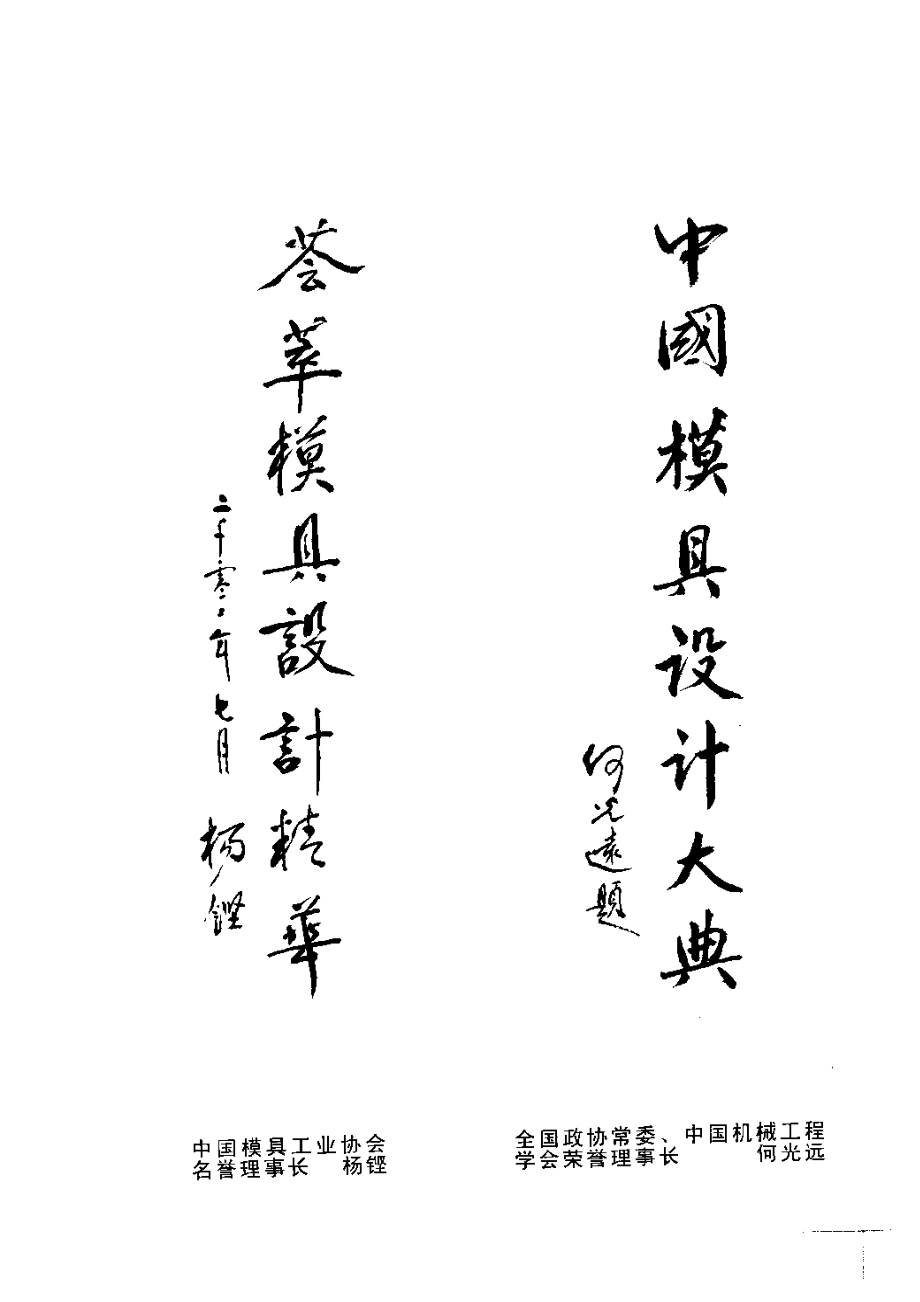 中國模具设计大典
何光遠題
荟萃模具設計精華
二千零一年七月 杨铿
全国政协常委、中国机械工程
学会荣誉理事长 何光远
中国模具工业协会
名誉理事长 杨铿